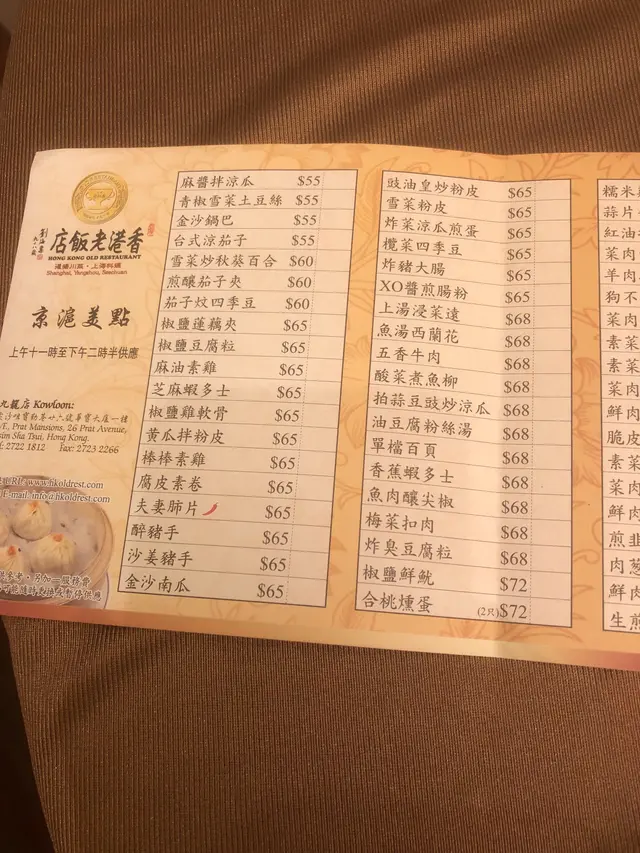 香港老飯店
HONG KONG OLD RESTAURANT
滬揚川風·上海料理
Shanghai, Yangzhou, Szechuan
京滬美點
上午十一時至下午二時半供應
九龍店 Kowloon:
Prat Mansions, 26 Prat Avenue,
Sim Sha Tsui, Hong Kong.
2722 1812 Fax: 2723 2266
URL: www.hkoldrest.com
E-mail: info@hkoldrest.com
另加一服務費
麻醬拌涼瓜 $55
青椒雪菜土豆絲 $55
金沙鍋巴 $55
台式涼茄子 $55
雪菜炒秋葵百合 $60
煎釀茄子夾 $60
茄子炆四季豆 $60
椒鹽蓮藕夾 $65
椒鹽豆腐粒 $65
麻油素雞 $65
芝麻蝦多士 $65
椒鹽雞軟骨 $65
黃瓜拌粉皮 $65
棒棒素雞 $65
腐皮素卷 $65
夫妻肺片 $65
醉豬手 $65
沙姜豬手 $65
金沙南瓜 $65
豉油皇炒粉皮 $65
雪菜粉皮 $65
炸菜涼瓜煎蛋 $65
欖菜四季豆 $65
炸豬大腸 $65
XO醬煎腸粉 $65
上湯浸菜遠 $68
魚湯西蘭花 $68
五香牛肉 $68
酸菜煮魚柳 $68
拍蒜豆豉炒涼瓜 $68
油豆腐粉絲湯 $68
單檔百頁 $68
香蕉蝦多士 $68
魚肉釀尖椒 $68
梅菜扣肉 $68
炸臭豆腐粒 $68
椒鹽鮮魷 $72
合桃燻蛋 (2只)$72
糯米
蒜片
紅油
菜肉
羊肉
狗不
菜肉
素菜
素菜
菜肉
鮮肉
脆皮
素菜
菜肉
鮮肉
煎韭
肉蔥
鮮肉
生煎